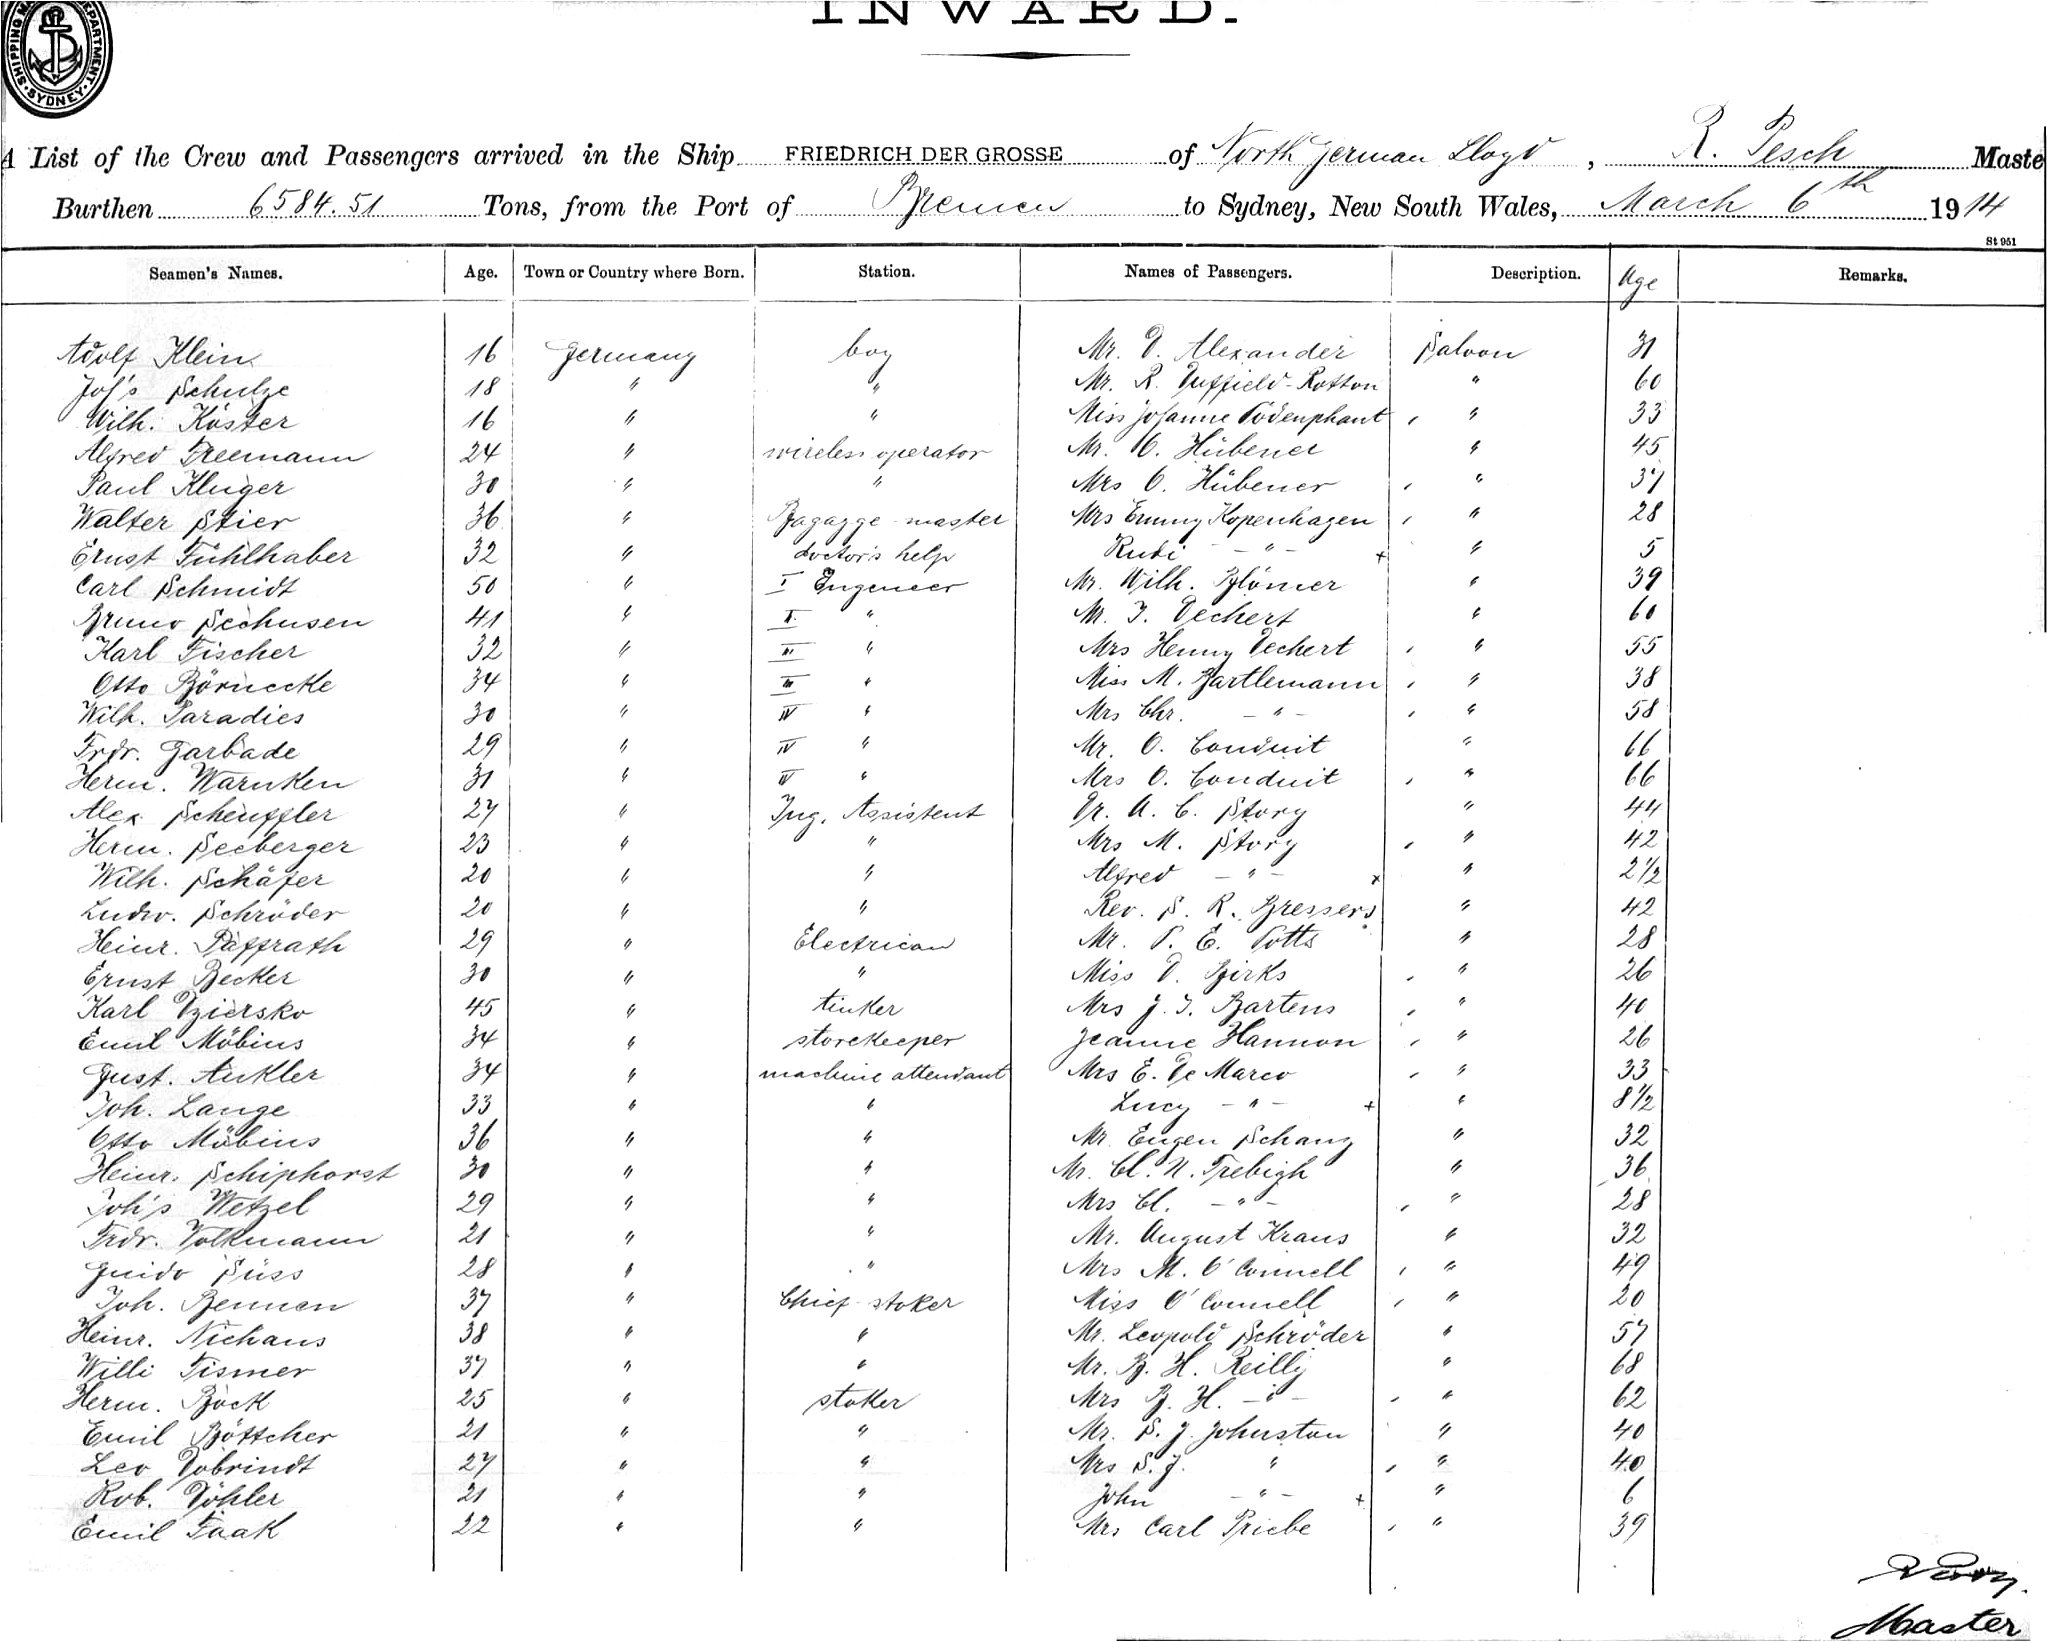 INWARD.
SHIPPING MA DEPARTMENT SYDNEY
A List of the Crew and Passengers arrived in the Ship FRIEDRICH DER GROSSE of North German Lloyd, R. Pesch Maste
Burthen 6584.51 Tons, from the Port of Bremen to Sydney, New South Wales, March 6th 1914
St 951
Seamen's Names. Age. Town or Country where Born. Station. Names of Passengers. Description. Age Remarks.
Adolf Klein 16 Germany boy Mr. D. Alexander Saloon 31
Joh's Schulze 18 " " Mr. R. Duffield-Rotton " 60
Wilh. Köster 16 " " Miss Johanne Todenphant " 33
Alfred Freemann 24 " wireless operator Mr. O. Hübener " 45
Paul Kluger 30 " " Mrs O. Hübener " 37
Walter Stier 36 " Bagagge-master Mrs Emmy Kopenhagen " 28
Ernst Fühlhaber 32 " doctor's help Rudi - " - + " 5
Carl Schmidt 50 " I Ingeneer Mr. Wilh. Blömer " 39
Bruno Seehusen 41 " II. " M. J. Dechert " 60
Karl Fischer 32 " III " Mrs Henny Dechert " 55
Otto Börnecke 34 " III " Miss M. Bartlemann " 38
Wilh. Paradies 30 " IV " Mrs Chr. - " - " 58
Frdr. Garbade 29 " IV " Mr. O. Conduit " 66
Herm. Warnken 31 " IV " Mrs O. Conduit " 66
Alex Scheuffler 27 " Ing. Assistent Dr. A. C. Story " 44
Herm. Seeberger 23 " " Mrs M. Story " 42
Wilh. Schäfer 20 " " Alfred - " - x " 2 1/2
Ludw. Schröder 20 " " Rev. S. R. Bressers " 42
Heinr. Paffrath 29 " Electrican Mr. P. E. Potts " 28
Ernst Becker 30 " " Miss D. Birks " 26
Karl Dziersko 45 " tinker Mrs J. J. Bartens " 40
Emil Möbius 34 " storekeeper Jeanne Hannon " 26
Gust. Ankler 34 " machine attendant Mrs E. De Marco " 33
Joh. Lange 33 " " Lucy - " - + " 8 1/2
Otto Möbius 36 " " Mr. Eugen Schanz " 32
Heinr. Schiphorst 30 " " Mr. Cl. N. Trebigh " 36
Joh's Wetzel 29 " " Mrs Cl. - " - " 28
Frdr. Volkmann 21 " " Mr. August Kraus " 32
Guido Süss 28 " " Mrs M. O'Connell " 49
Joh. Bennen 37 " Chief-stoker Miss O'Connell " 20
Heinr. Niehaus 38 " " Mr. Leopold Schröder " 57
Willi Tismer 37 " " Mr. B. H. Reilly " 68
Herm. Böck 25 " stoker Mrs B. H. - " - " 62
Emil Böttcher 21 " " Mr. S. J. Johnston " 40
Leo Dobrindt 27 " " Mrs S. J. " " 40
Rob. Döhler 21 " " John - " - + " 6
Emil Faak 22 " " Mrs Carl Priebe " 39
Master